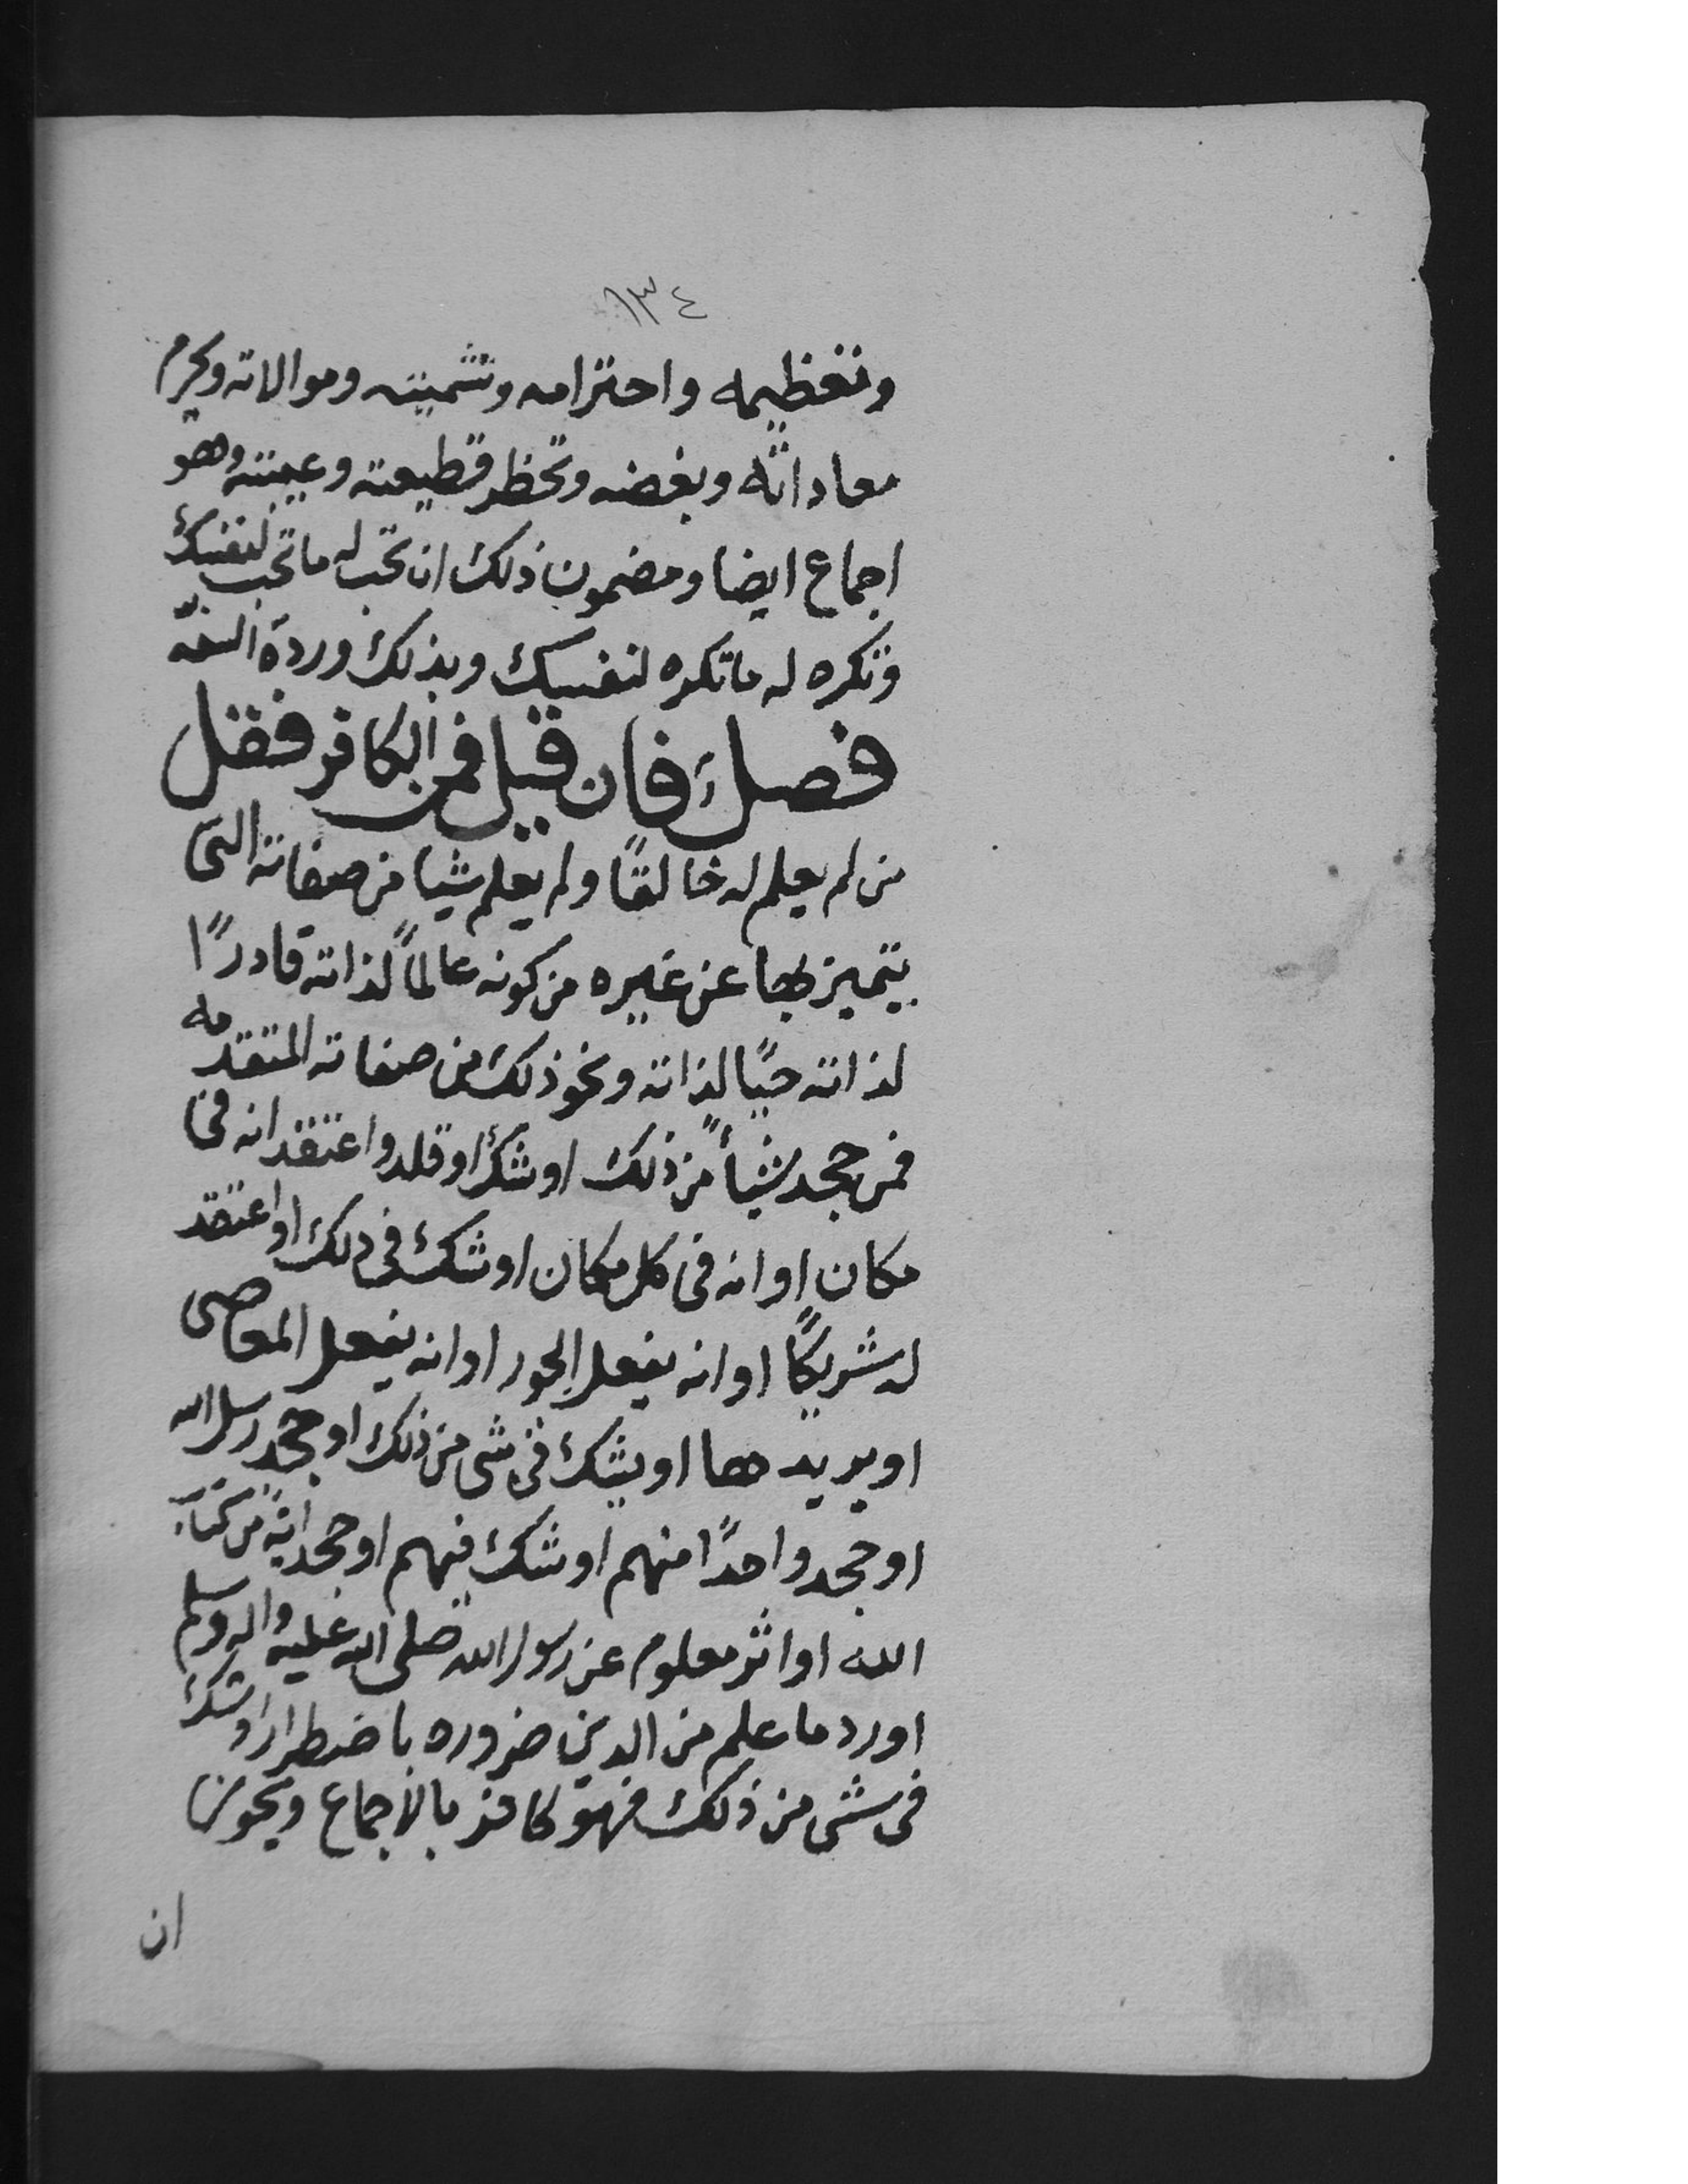 ١٣٤
وتعظيمه واحترامه وتشميته وموالاته ويحرم
معاداته وبغضه وتحظر قطيعته وغيبته وهو
اجماع ايضا ومضمون ذلك ان تحب له ما تحب لنفسك
وتكره له ما تكره لنفسك وبذلك وردة السنه
فصل فان قيل فمن الكافر فقل
من لم يعلم له خالقًا ولم يعلم شيا من صفاته التى
يتميز بها عن غيره من كونه عالمًا لذاته قادرًا
لذاته حيًا لذاته ونحو ذلك من صفاته المتقدمه
فمن جحد شيأً من ذلك او شك او قلد واعتقد انه فى
مكان او انه فى كل مكان او شك فى ذلك او اعتقد
له شريكًا او انه يفعل الجور او انه يفعل المعاصى
او يريدها او يشك فى شى من ذلك او جحد رسل الله
او جحد واحدًا منهم او شك فيهم او جحد اية من كتاب
الله او اثر معلوم عن رسول الله صلى الله عليه واله وسلم
او رد ما علم من الدين ضروره باضطرار او شك
فى شى من ذلك فهو كافر بالاجماع ويجوز
ان